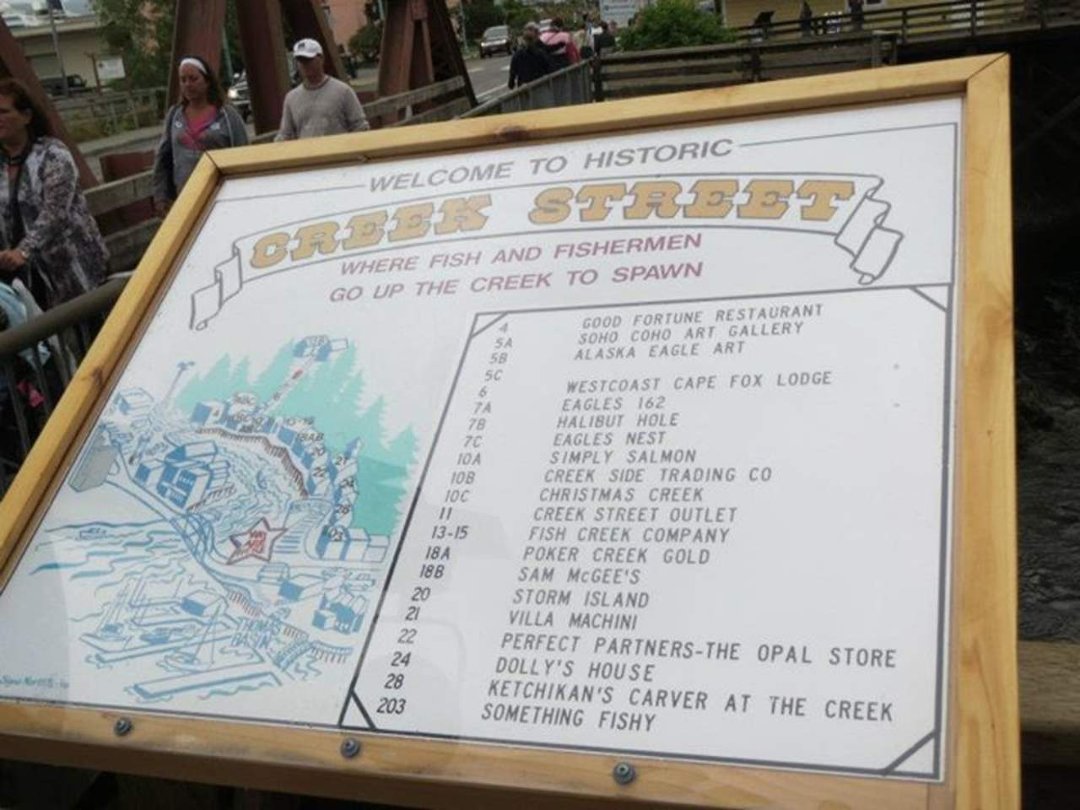 WELCOME TO HISTORIC
CREEK STREET
WHERE FISH AND FISHERMEN
GO UP THE CREEK TO SPAWN
4 GOOD FORTUNE RESTAURANT
5A SOHO COHO ART GALLERY
5B ALASKA EAGLE ART
5C
6 WESTCOAST CAPE FOX LODGE
7A EAGLES 162
7B HALIBUT HOLE
7C EAGLES NEST
10A SIMPLY SALMON
10B CREEK SIDE TRADING CO
10C CHRISTMAS CREEK
11 CREEK STREET OUTLET
13-15 FISH CREEK COMPANY
18A POKER CREEK GOLD
18B SAM McGEE'S
20 STORM ISLAND
21 VILLA MACHINI
22 PERFECT PARTNERS-THE OPAL STORE
24 DOLLY'S HOUSE
28 KETCHIKAN'S CARVER AT THE CREEK
203 SOMETHING FISHY
THOMAS
BASIN